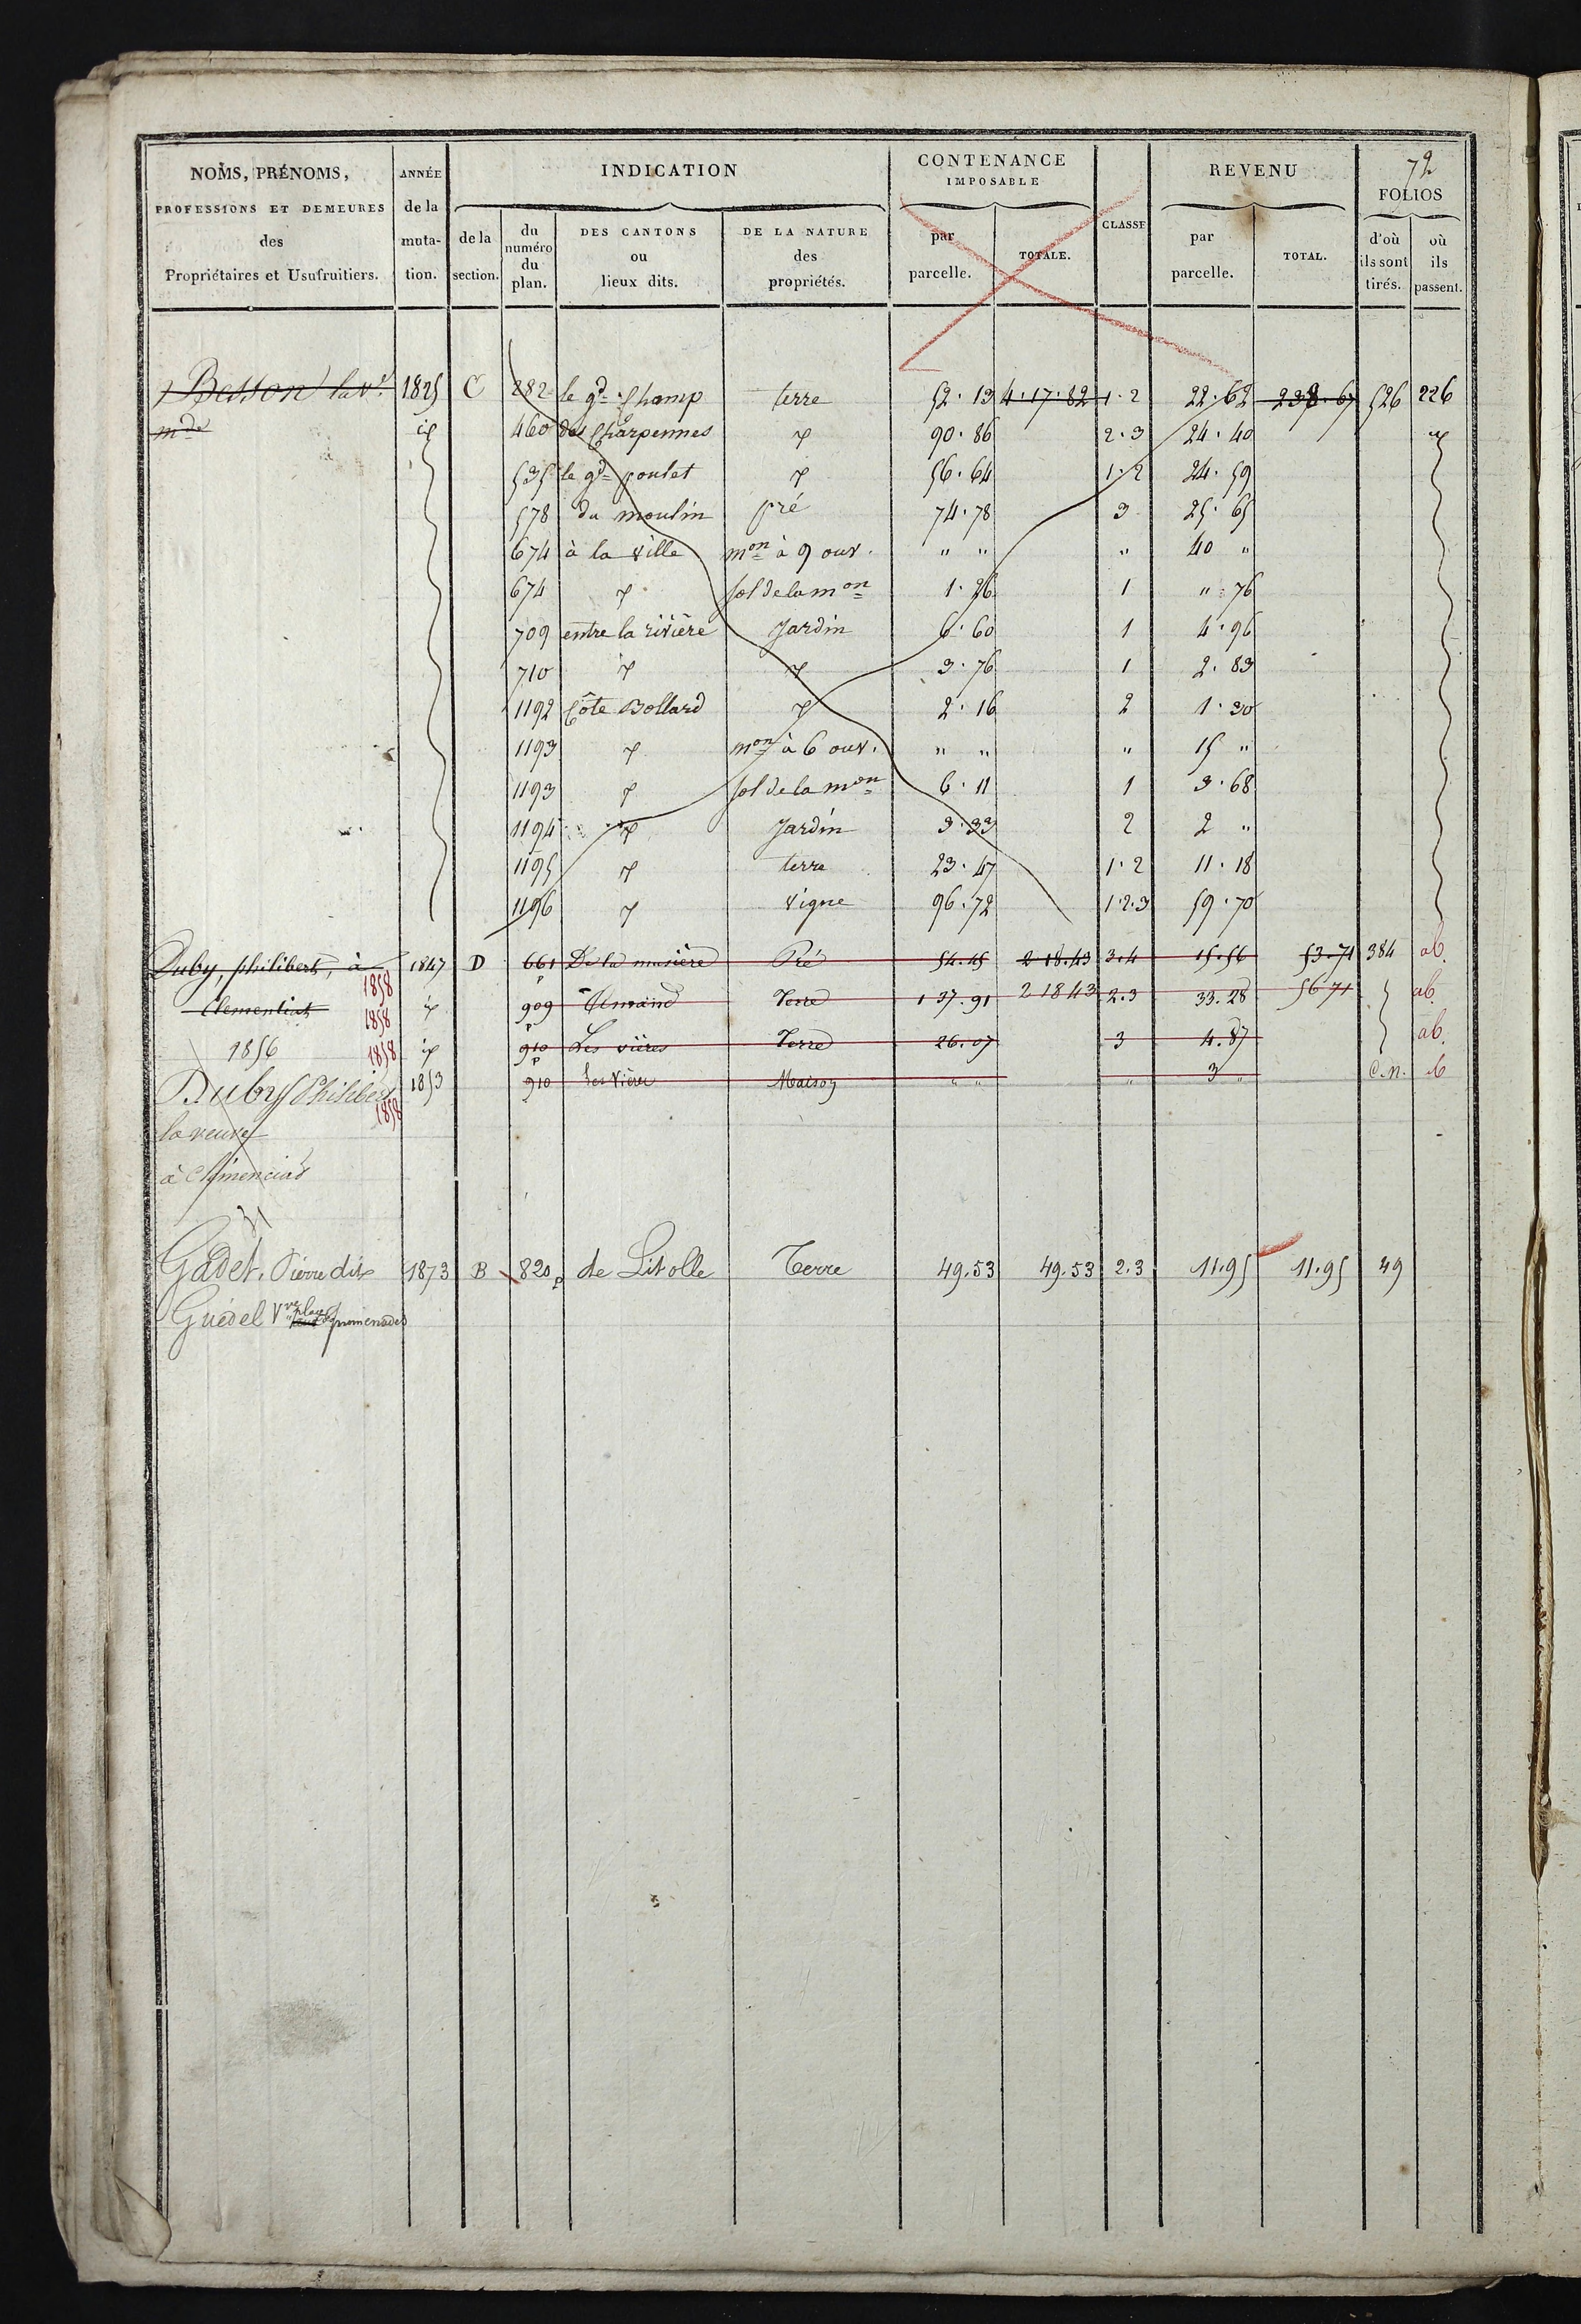 72
NOMS, PRÉNOMS, ANNÉE INDICATION CONTENANCE IMPOSABLE CLASSE REVENU FOLIOS
PROFESSIONS ET DEMEURES des Propriétaires et Usufruitiers. de la muta- tion. de la section. du numéro du plan. DES CANTONS ou lieux dits. DE LA NATURE des propriétés. par parcelle. TOTALE. par parcelle. TOTAL. d'où ils sont tirés. où ils passent.
Besson la Ve 1825 C 282 le gd Champ terre 52.13 4.17.82 1.2 22.62 238.67 526 226
mde id 460 des Charpennes id 90.86 2.3 24.40 id
535 le gd poulet id 56.64 1.2 24.59
578 du moulin pré 74.78 3 25.65
674 à la ville mon à 9 ouv. " " " 40 "
674 id sol de la mon 1.26 1 " 76
709 entre la rivière Jardin 6.60 1 4.96
710 id id 3.76 1 2.83
1192 Côte Bollard id 2.16 2 1.30
1193 id mon à 6 ouv. " " " 15 "
1193 id sol de la mon 6.11 1 3.68
1194 id Jardin 3.33 2 2 "
1195 id terre 23.47 1.2 11.18
1196 id vigne 96.72 1.2.3 59.70
Duby, philibert, à 1847 D 661 De la musière Pré 54.45 2 18.43 3.4 15.56 53.71 384 ab.
1858
Clementiat id 909 p Terre 1 37.91 2 18 43 2.3 33.28 56 71 ab.
1858
1856 1858 id 910 p Les vières Terre 26.07 3 4.87 ab.
Duby Philibert 1853 910 p Les Vières Maison " " " 3 " C.N. ab
1858
la veuve
à Clémenciat
Gadet. Pierre dit 1873 B 820 p de Litolle Terre 49.53 49.53 2.3 11.95 11.95 49
Guédel Vve place des promenades